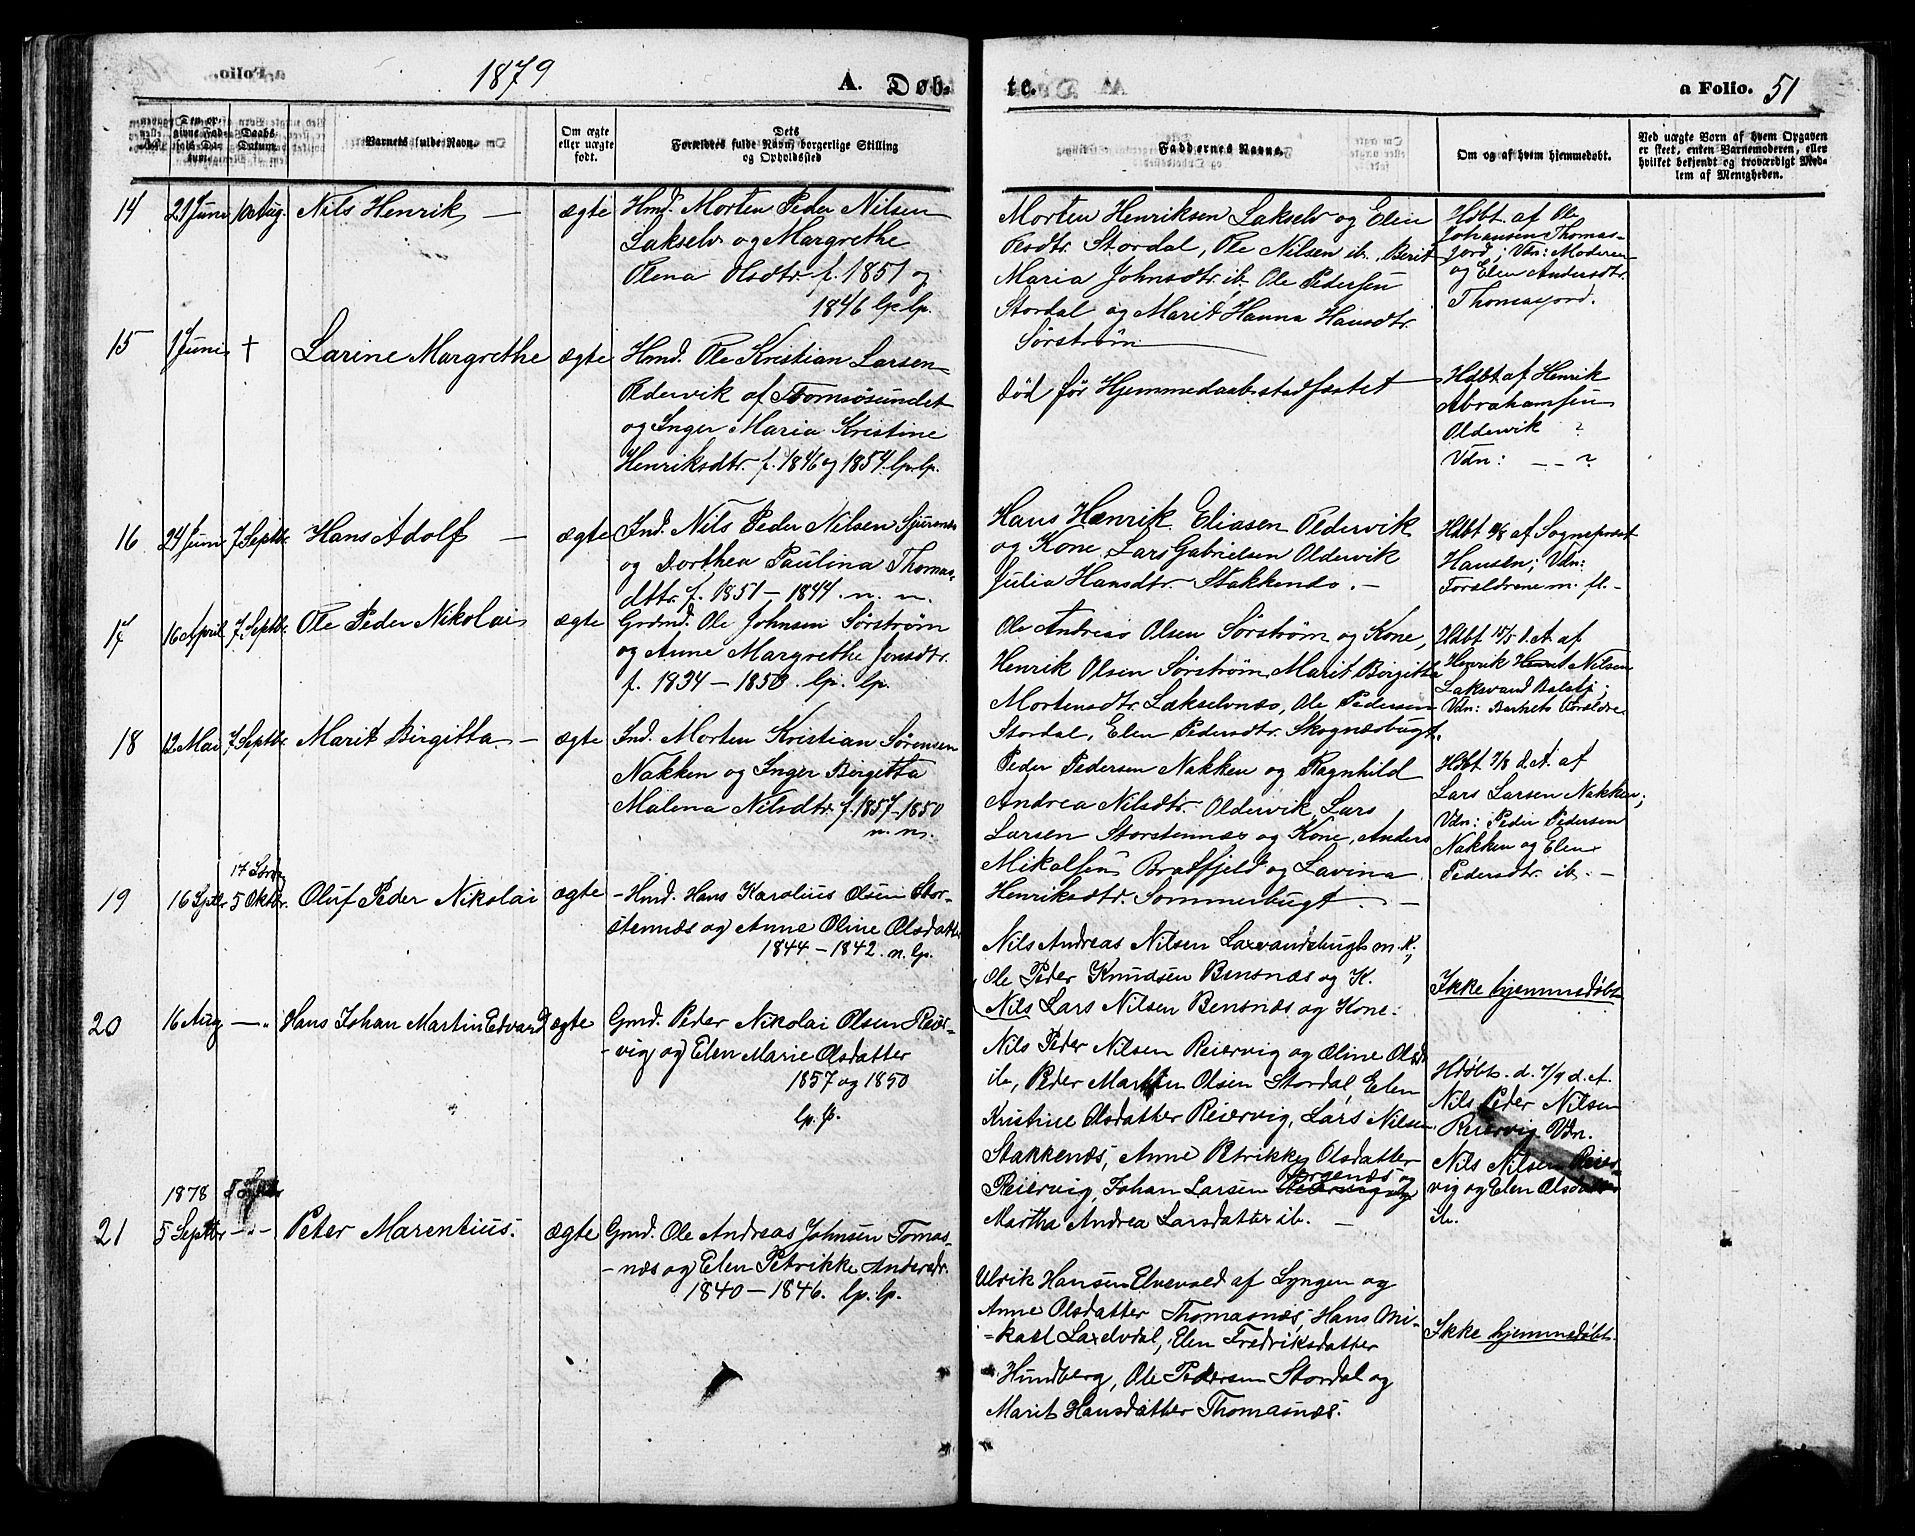 1879
A. Døb-
te.
a Folio. 51
Den an-
givne Fød-
sels Da-
tum.
Daabs-
Datum.
Barnets fulde Navn.
Om ægte
eller uægte
født.
Dets
Forældres fulde Navn, borgerlige Stilling
og Opholdssted
Faddernes Navne.
Om og af hvem hjemmedøbt.
Ved uægte Børn af hvem Opgaven
er skeet, enten Barnemoderen, eller
hvilket bekjendt og troværdigt Med-
lem af Menigheden.
14 21 Juni 10 Aug. Nils Henrik — ægte
Hmd. Morten Peder Nilsen
Lakselv og Margrethe
Olena Olsdtr. f. 1851 og
1846 lp. lp.
Morten Henriksen Lakselv og Elen
Olsdtr. Stordal, Ole Nilsen ib., Berit
Maria Johnsdtr. ib. Ole Pedersen
Stordal og Marit Hanna Hansdtr.
Sørstrøm
Hdbt. af Ole
Johansen Thomas-
jord; Vdn: Moderen
og Elen Andersdtr.
Thomasjord.
15 1 Juni † Larine Margrethe ægte
Hmd. Ole Kristian Larsen
Oldervik af Tromsøsundet
og Inger Maria Kristine
Henriksdtr. f. 1846 og 1854. lp. lp.
Død før Hjemmedaab. stadfæstet
Hdbt. af Henrik
Abrahamsen
Oldervik ?
Vdn: — — ?
16 24 Juni 7 Septbr. Hans Adolf — ægte
Ind. Nils Peder Nilsen Sjursnes
og Dorthea Paulina Thomas-
dttr. f. 1851 — 1844. n. n.
Hans Henrik Eliasen Oldervik
og Kone, Lars Gabrielsen Oldervik
Julia Hansdtr. Stakkenæs. —
Hdbt. af Sogneprest
Hansen; Vdn:
Forældrene m. fl. —
17 16 April 7. Septbr. Ole Peder Nikolai ægte
Grdmd. Ole Johnsen Sørstrøm
og Anne Margrethe Jensdtr.
f. 1834 — 1850. lp. lp.
Ole Andreas Olsen Sørstrøm og Kone,
Henrik Olsen Sørstrøm, Marit Birgitta
Mortensdtr. Lakselvnæs, Ole Pedersen
Stordal, Elen Pedersdtr. Skognæsbugt.
Hdbt. 15/5 d. A. af
Henrik Nilsen
Laksvand Balsfj.;
Vdn: Barnets Forældre.
18 12 Mai 7 Septbr. Marit Birgitta. — ægte
Ind. Morten Kristian Sørensen
Nakken og Inger Birgitta
Malena Nilsdtr. f. 1857 - 1850
n. n.
Peder Pedersen Nakken og Ragnhild
Andrea Nilsdtr. Oldervik, Lars
Larsen Storstennæs og Kone, Anders
Mikalsen Bratfjeld og Lavina
Henriksdtr. Sommerbugt. —
Hdbt. 7/8 d. A. af
Lars Larsen Nakken;
Vdn: Peder Pedersen
Nakken og Elen
Pedersdtr. ib. —
19 16 Septbr. 5 Oktbr. Oluf Peder Nikolai ægte
- Hmd. Hans Karolius Olsen Stor-
stennæs og Anne Oline Olsdatter
1844 — 1842. n. lp.
Nils Andreas Nilsen Laxvandsbugt m. K.,
Ole Peder Knudsen Bensnæs og K.
Nils Lars Nilsen Bensnæs og Kone.
Ikke hjemmedøbt
20 16 Aug. —"— Hans Johan Martin Edvard ægte
Gmd. Peder Nikolai Olsen Reier-
vig og Elen Marie Olsdatter
1857 og 1850
lp. lp.
Nils Peder Nilsen Reiervig og Oline Olsd.
ib., Peder Martin Olsen Stordal, Elen
Kristine Olsdatter Reiervig, Lars Nilsen
Stakkenæs, Anne Petrikke Olsdatter
Reiervig, Johan Larsen
Martha Andrea Larsdatter ib. —
Hdøbt. d. 7/9 d. A.
Nils Peder Nilsen
Reiervig. Vdn.
Nils Nilsen Reier-
vig og Elen Olsdatter
ib.
21 1878 5 Septbr. —"— Peter Marentius. ægte
Gmd. Ole Andreas Johnsen Tomas-
næs og Elen Petrikke Andersdr.
1840 — 1846. lp. lp.
Ulrik Hansen Elvevold af Lyngen og
Anne Olsdatter Thomasnæs, Hans Mi-
kael Laxelvdal, Elen Fredriksdatter
Hundberg, Ole Pedersen Stordal og
Marit Hansdatter Thomasnæs.
Ikke hjemmedøbt.